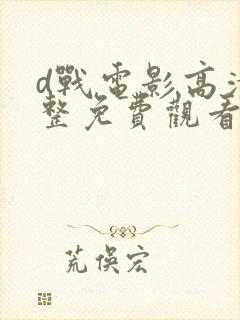 d戰電影高清
整免費觀看
荒俁宏